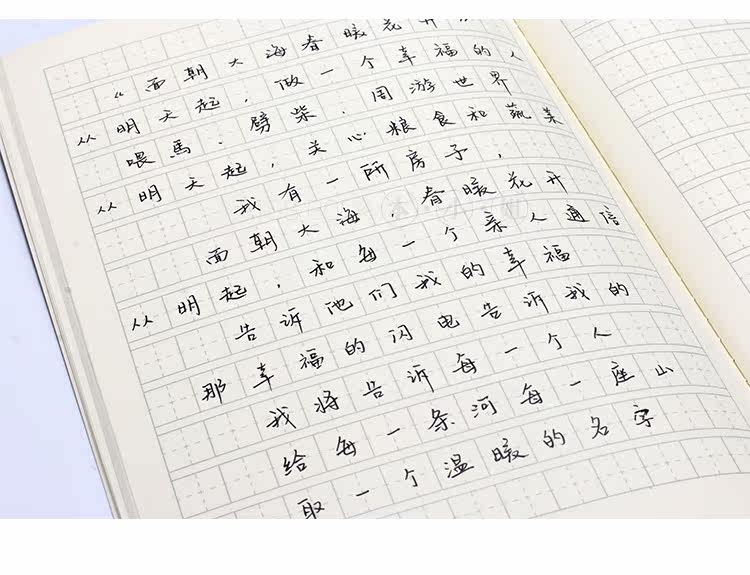 《面朝大海春暖花开
从明天起，做一个幸福的人
喂馬、劈柴、周游世界
从明天起，关心粮食和蔬菜
我有一所房子，
面朝大海，春暖花开
从明起，和每一个亲人通信
告诉他们我的幸福
那幸福的闪电告诉我的
我将告诉每一个人
给每一条河每一座山
取一个温暖的名字